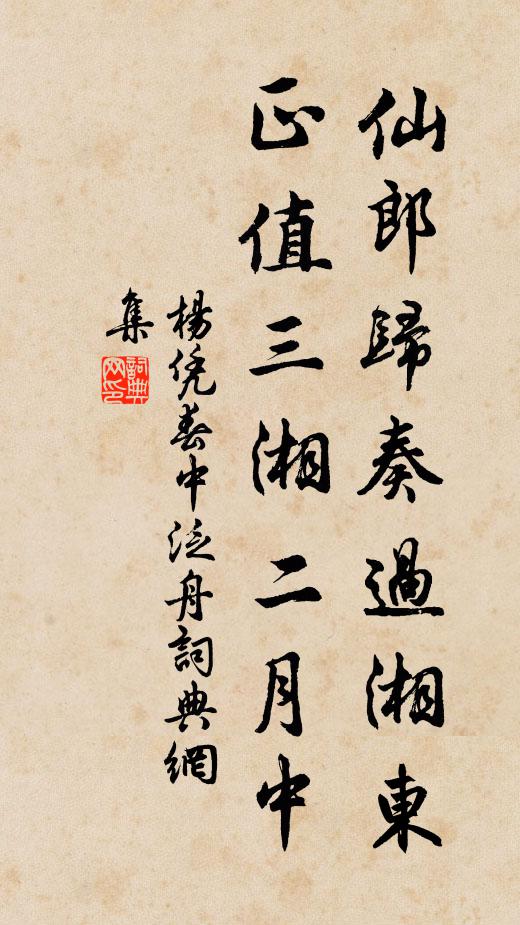 仙郎歸奏過湘東
正值三湘二月中
楊凭春中泛舟詞典網
集
詞典網印